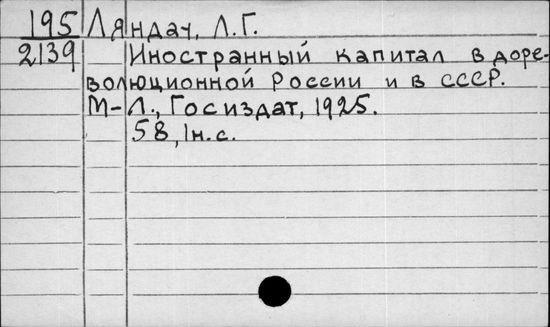 195 Ляндау, Л.Г.
2139 Иностранный капитал в доре-
волюционной России и в СССР.
М-Л., Госиздат, 1925.
58, 1н.с.